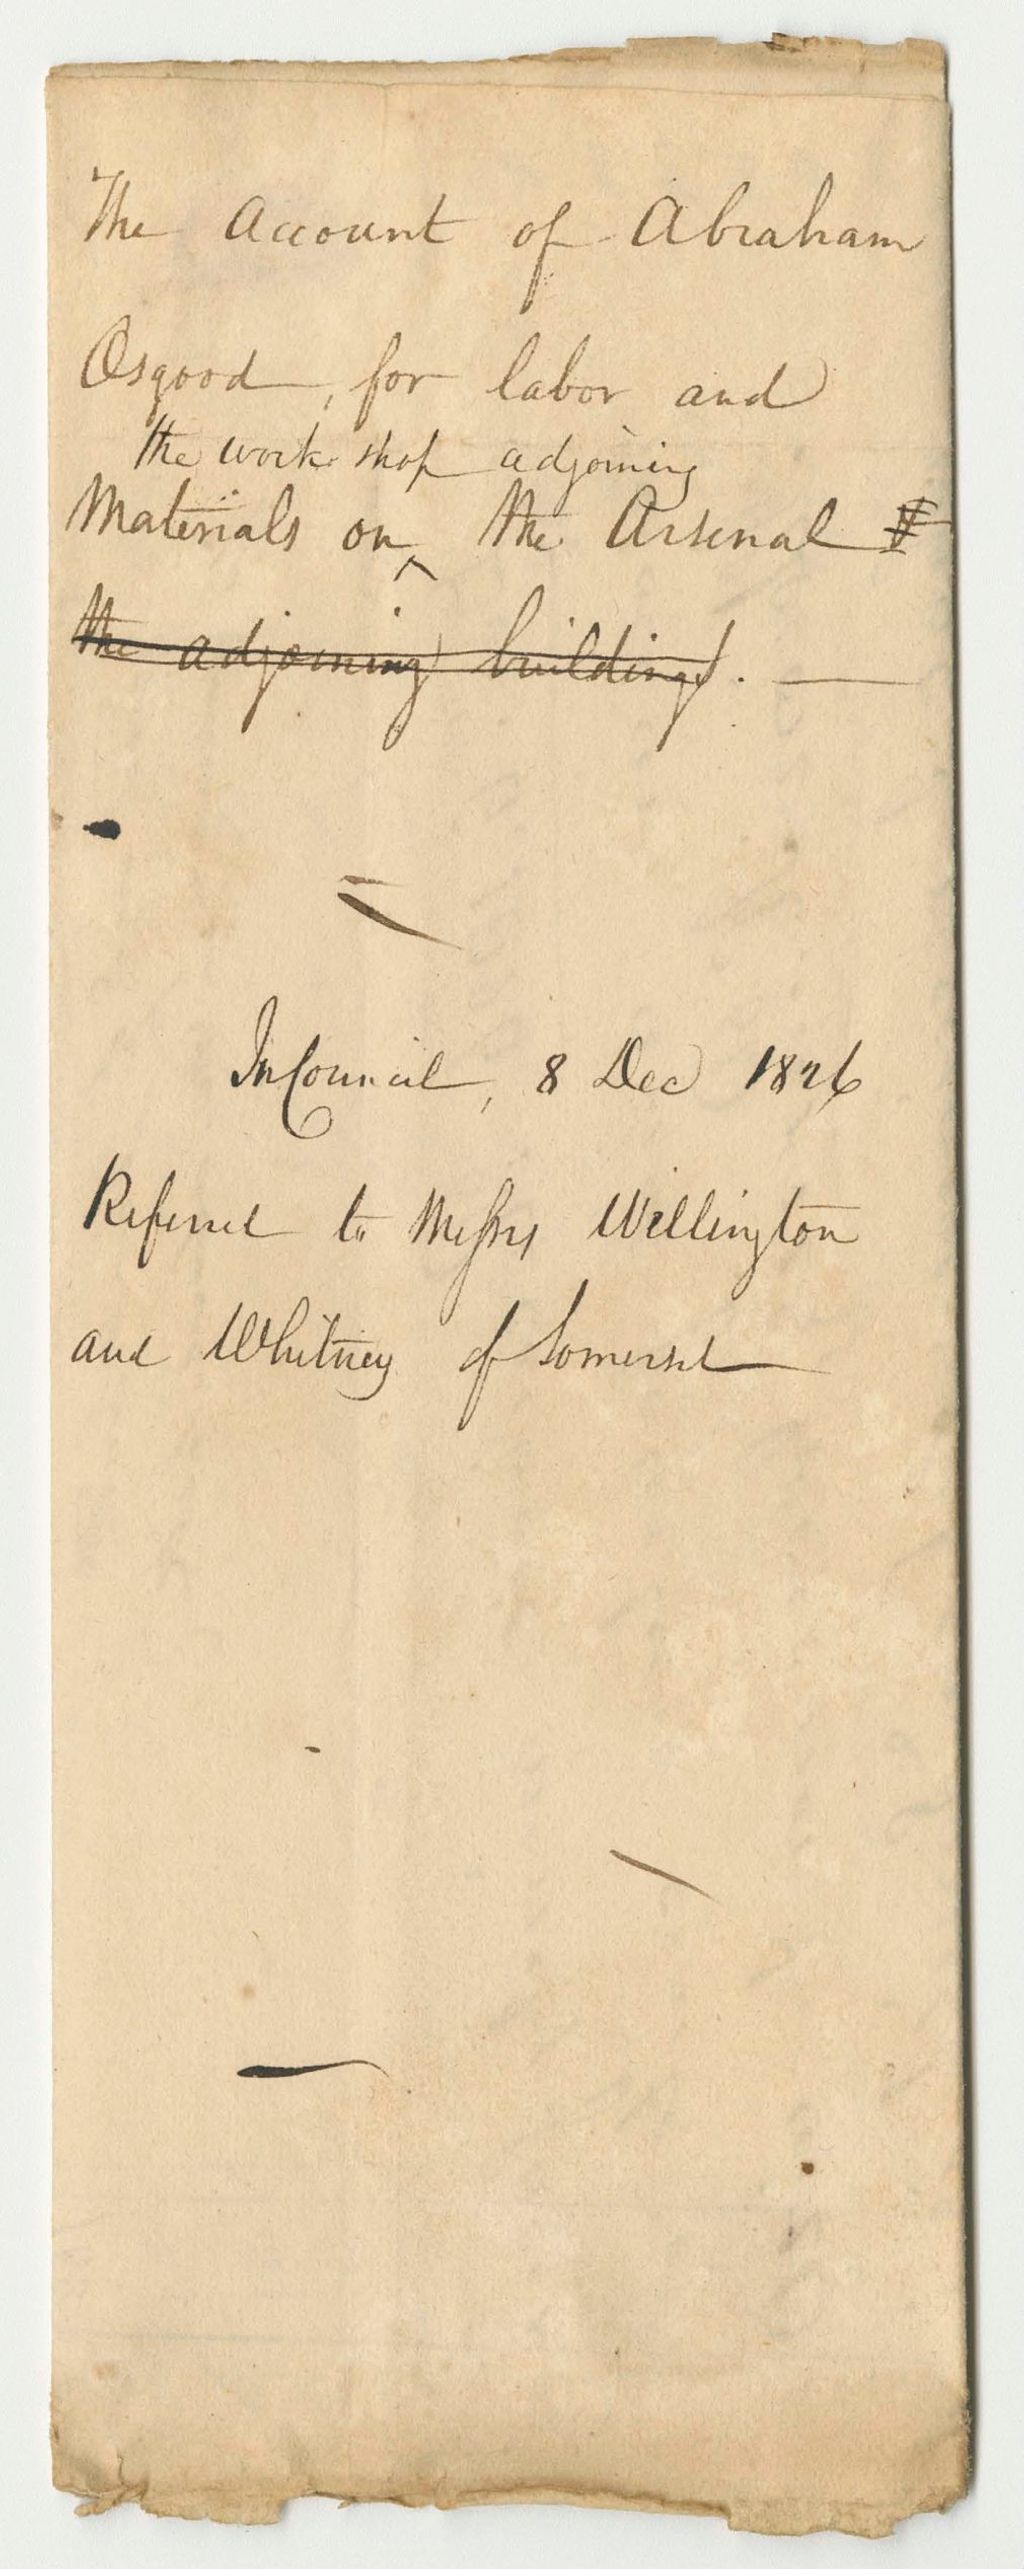 The Account of Abraham
Osgood, for labor and
the work shop adjoining
Materials on ^ the Arsenal &
the adjoining buildings. —
In Council, 8 Dec 1826
Referred to Messrs Wellington
and Whitney of Somerset